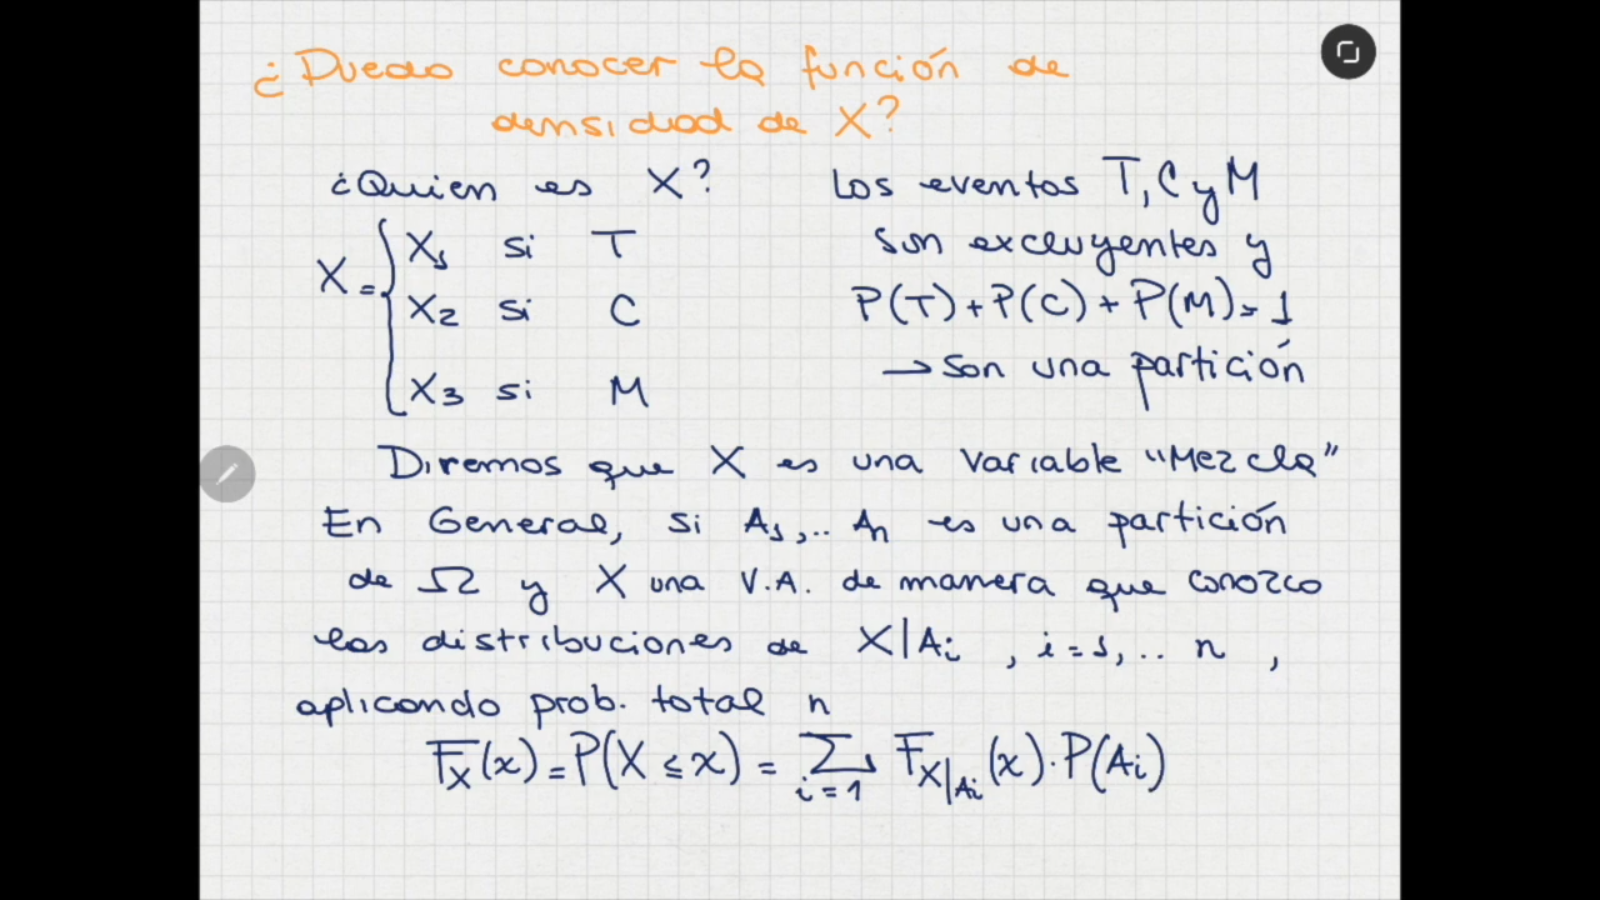 ¿Puedo conocer la función de
densidad de X?
¿Quien es X?
X = { X1 si T
X2 si C
X3 si M
Los eventos T, C y M
son excluyentes y
P(T) + P(C) + P(M) = 1
→ son una partición
Diremos que X es una variable "Mezcla"
En General, si A1,.. An es una partición
de Ω y X una V.A. de manera que conozco
las distribuciones de X|Ai , i=1,.. n ,
aplicando prob. total
F_X(x) = P(X ≤ x) = ∑_{i=1}^{n} F_{X|Ai}(x) · P(Ai)